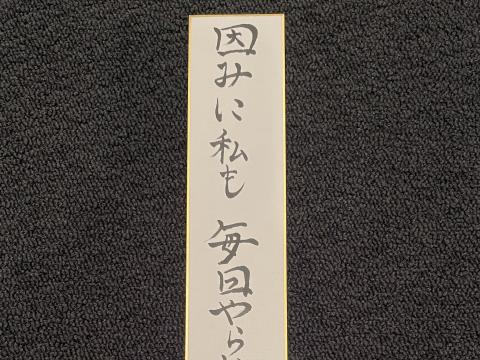 因みに私も 毎回やら